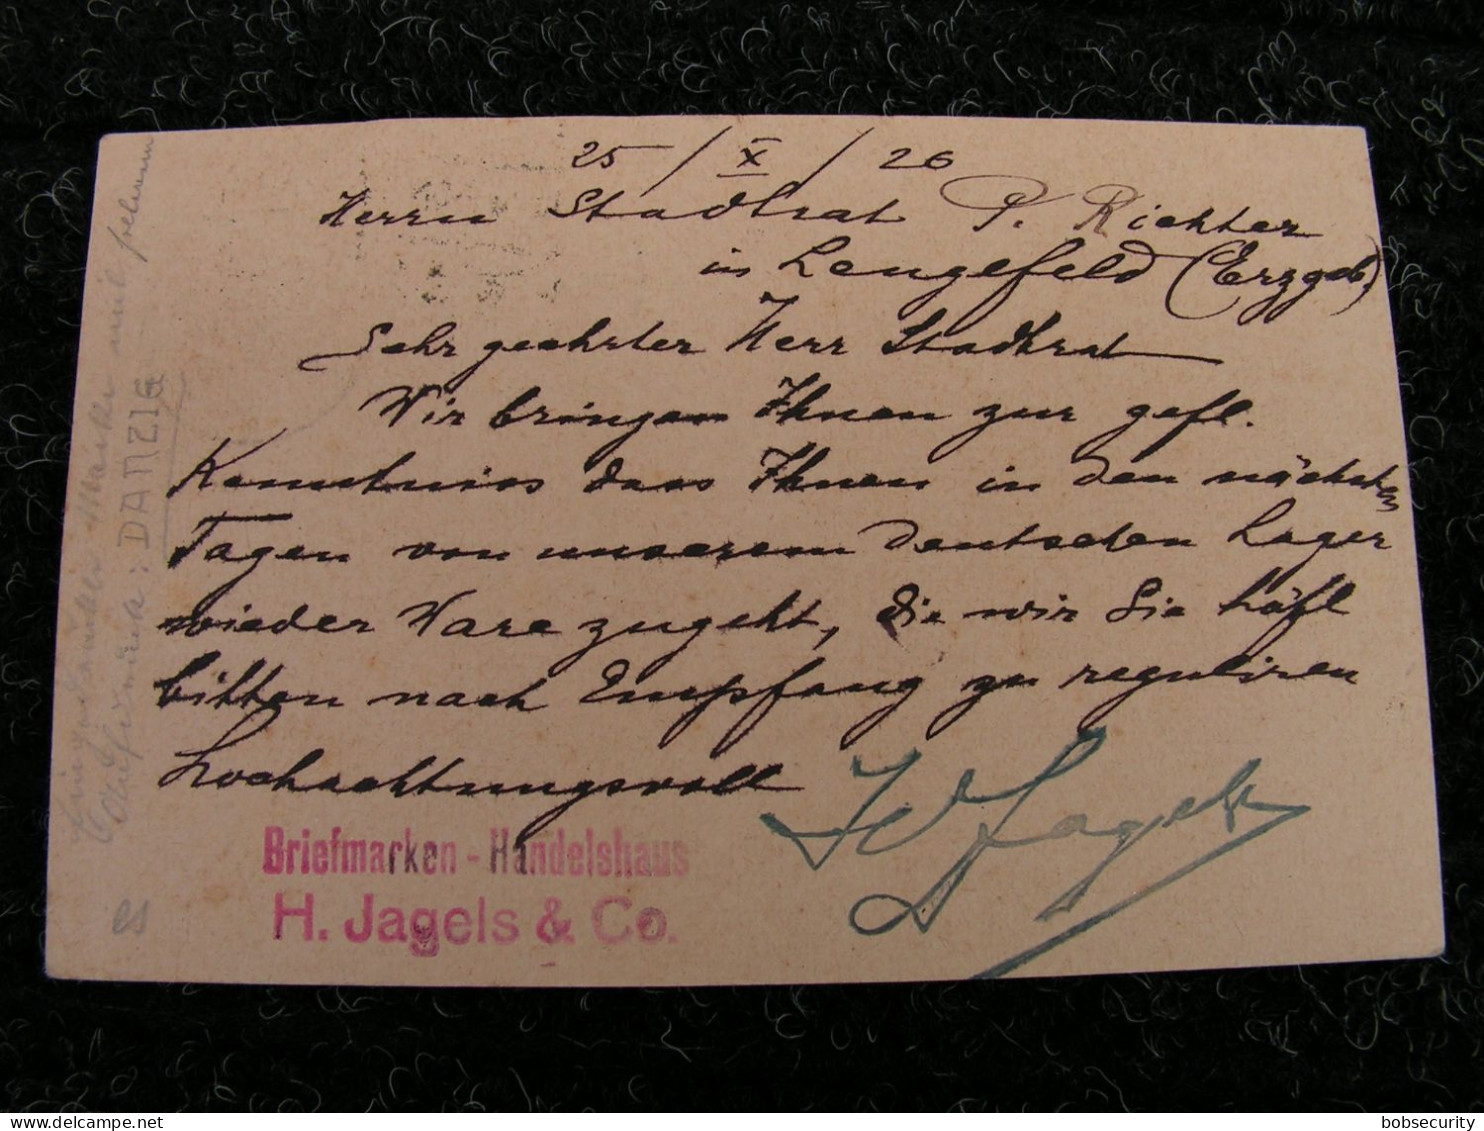 25 / X / 26
Herrn Stadtrat P. Richter
in Lengefeld (Erzgeb.)
Sehr geehrter Herr Stadtrat
Wir bringen Ihnen zur gefl.
Kenntniss dass Ihnen in den nächsten
Tagen von unserem Deutschen Lager
wieder Ware zugeht, die wir Sie höfl
bitten nach Empfang zu reguliren
Hochachtungsvoll
H Jagels
Briefmarken - Handelshaus
H. Jagels & Co.
Marke mit
: DANZIG
bobsecurity